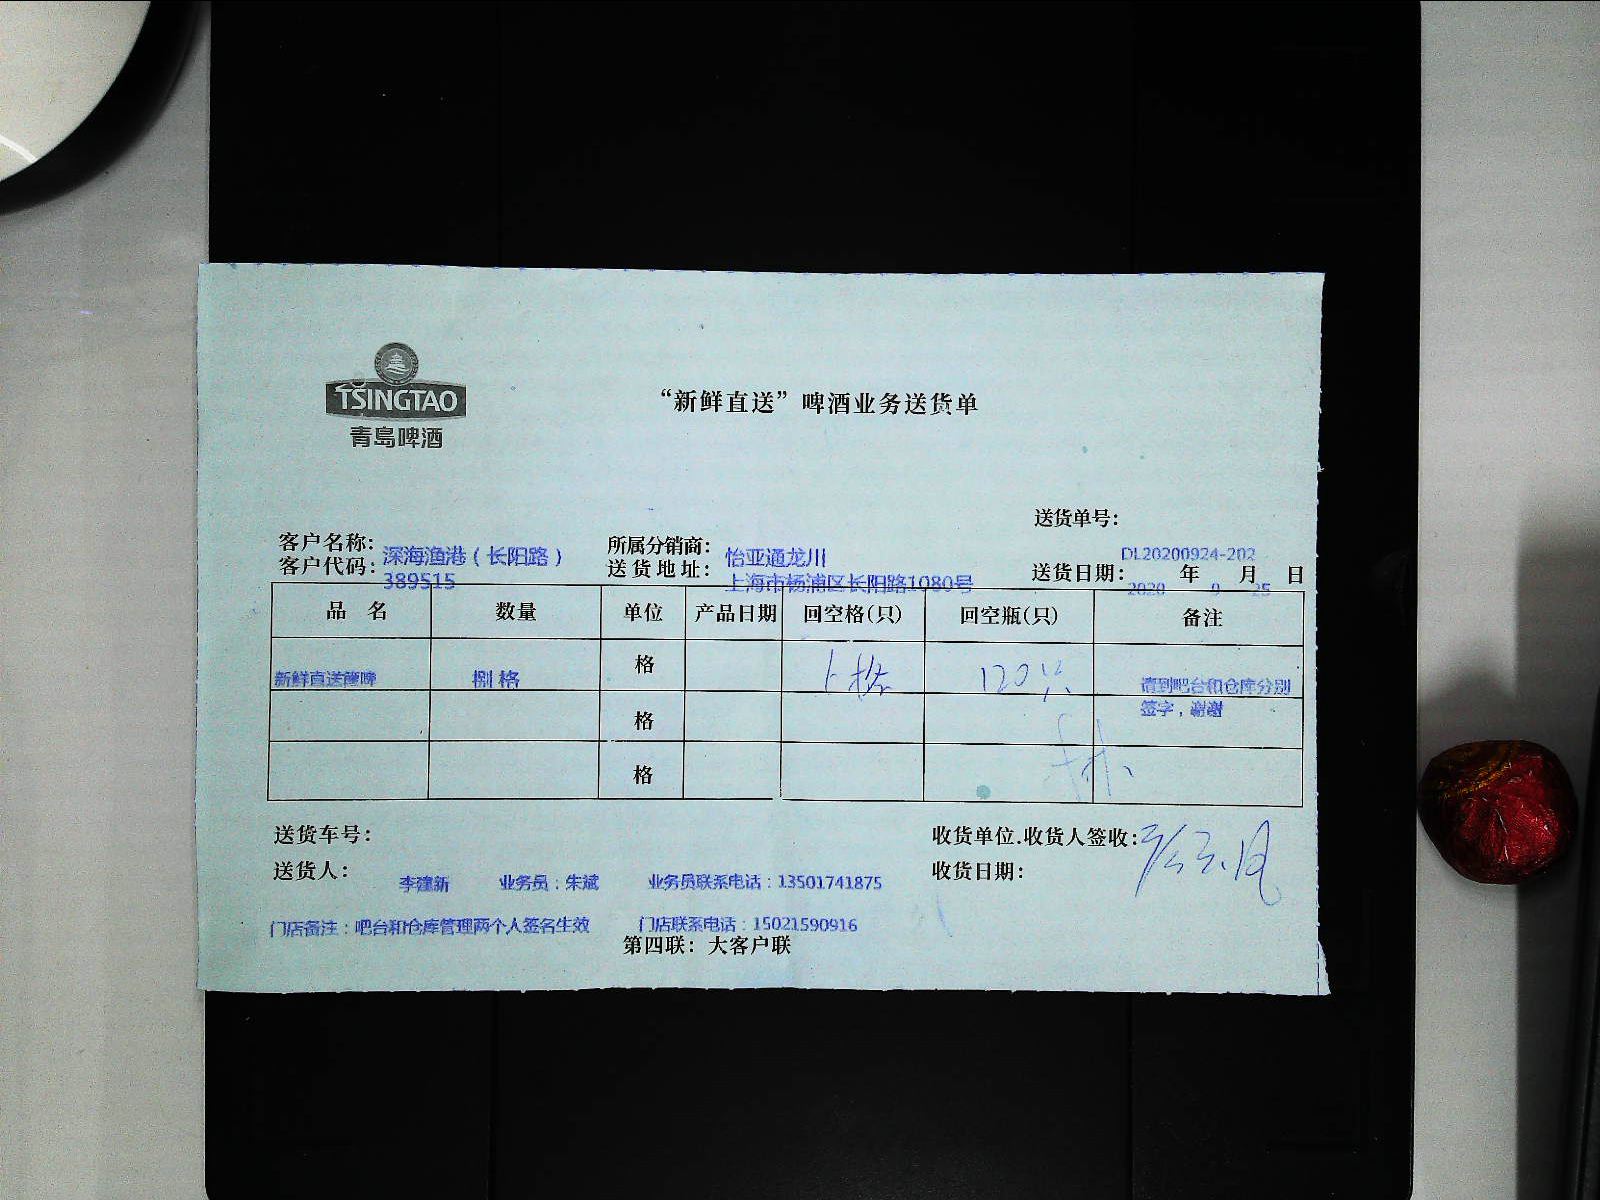 TSINGTAO
青岛啤酒
“新鲜直送”啤酒业务送货单
送货单号：DL20200924-202
客户名称：深海渔港（长阳路） 所属分销商：怡亚通龙川
客户代码：389515 送货地址：上海市杨浦区长阳路1080号 送货日期：2020年9月25日
品 名 数量 单位 产品日期 回空格(只) 回空瓶(只) 备注
新鲜直送 捌格 格 格 120只 请到吧台和仓库分别
签字，谢谢
格
格
送货车号： 收货单位.收货人签收：
送货人：李建新 业务员：朱斌 业务员联系电话：13501741875 收货日期：
门店备注：吧台和仓库管理两个人签名生效 门店联系电话：15021590916
第四联：大客户联